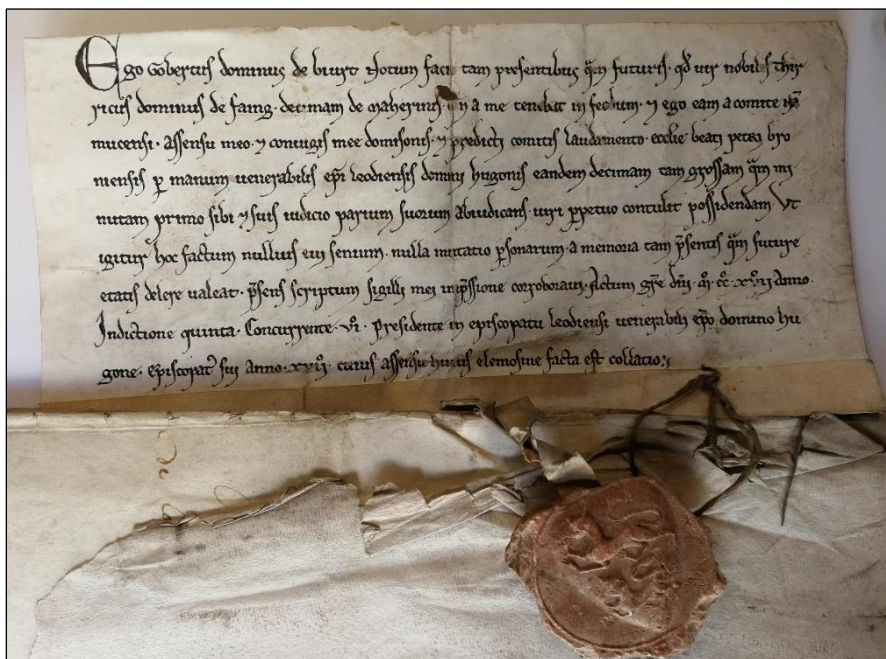 Ego Gobertus dominus de biurt Notum faci tam presentibus q̄m futuris · qđ uir nobilis thir
ricus dominus de faing · decimam de maherins · a me tenebat in feodum · ⁊ ego eam a comite
mucensi · Assensu meo ⁊ coniugis mee domisonis · ⁊ predicti comitis laudamento · ecclie beati petri bro
niensis ꝑ manum uenerabilis epi leodiensis domini hugonis eandem decimam tam grossam q̄m mi
nutam primo sibi ⁊ suis iudicio parium suorum Abiudicans · ꝑpetuo contulit possidendam · Vt
igitur hoc factum nullius eui senium · nulla mutatio ꝑsonarum a memoria tam p̄sentis q̄m future
etatis delere ualeat · p̄sens scriptum sigilli mei inp̄ssione corroboraui · Actum gr̄e dn̄i · mͦ · ccͦ · xvͦij Anno ·
Indictione quinta · Concurrente · viͦ · Presidente in episcopatu leodiensi uenerabili ep̄o domino hu
gone · Episcopat᾽ sui Anno · xvijͦ · cuius assensu huius elemosine facta est collatio ;